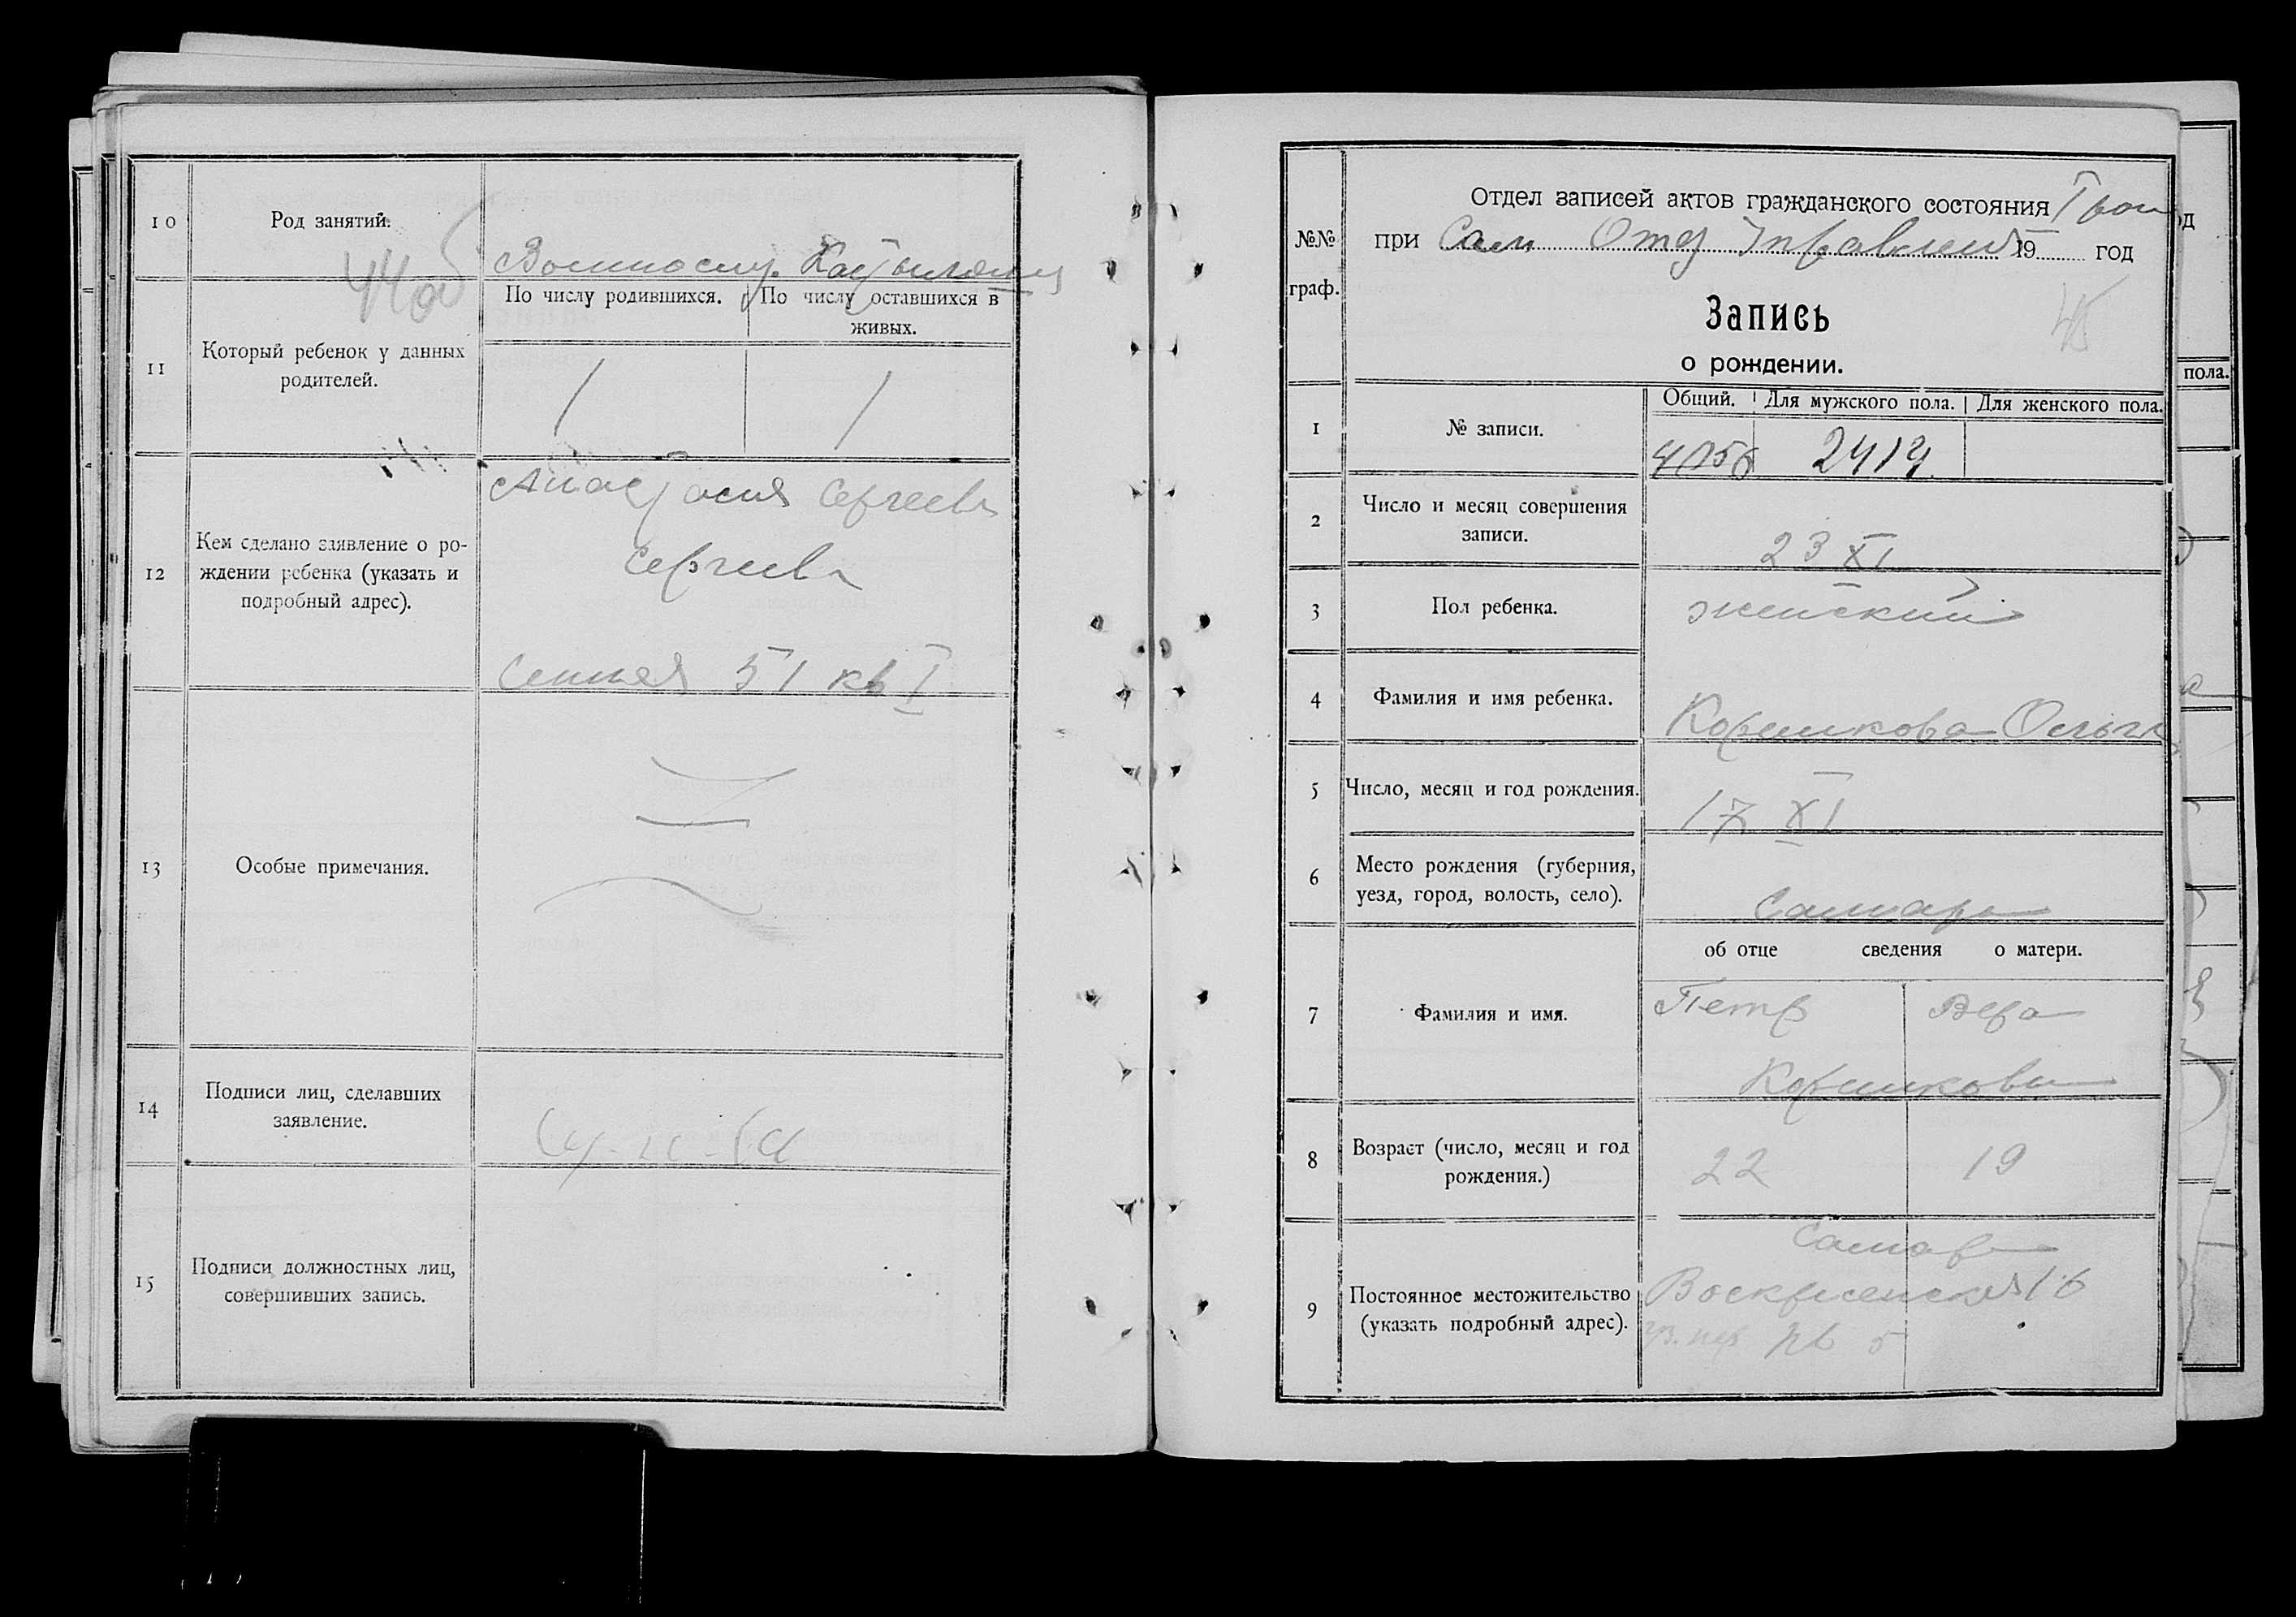 10
Род занятий.
44об
11
Который ребенок у данных
родителей.
По числу родившихся.
По числу оставшихся в
живых.
1
1
12
Кем сделано заявление о ро-
ждении ребенка (указать и
подробный адрес).
Анастасия Сергеевн
Сергеева
Сенная 51 кв I
13
Особые примечания.
14
Подписи лиц, сделавших
заявление.
15
Подписи должностных лиц,
совершивших запись.
№№
граф.
Отдел записей актов гражданского состояния
при Сам Отд Управления 19 год
45
Запись
о рождении.
1
№ записи.
Общий.
Для мужского пола.
Для женского пола.
2
Число и месяц совершения
записи.
23 XI
3
Пол ребенка.
женский
4
Фамилия и имя ребенка.
Коршикова Ольга
5
Число, месяц и год рождения.
17 XI
6
Место рождения (губерния,
уезд, город, волость, село).
Самара
об отце сведения о матери.
7
Фамилия и имя.
Петр
Вера
Коршиковы
8
Возраст (число, месяц и год
рождения.)
22
19
9
Постоянное местожительство
(указать подробный адрес).
Самара
Воскресенская 16
кв 5
пола.